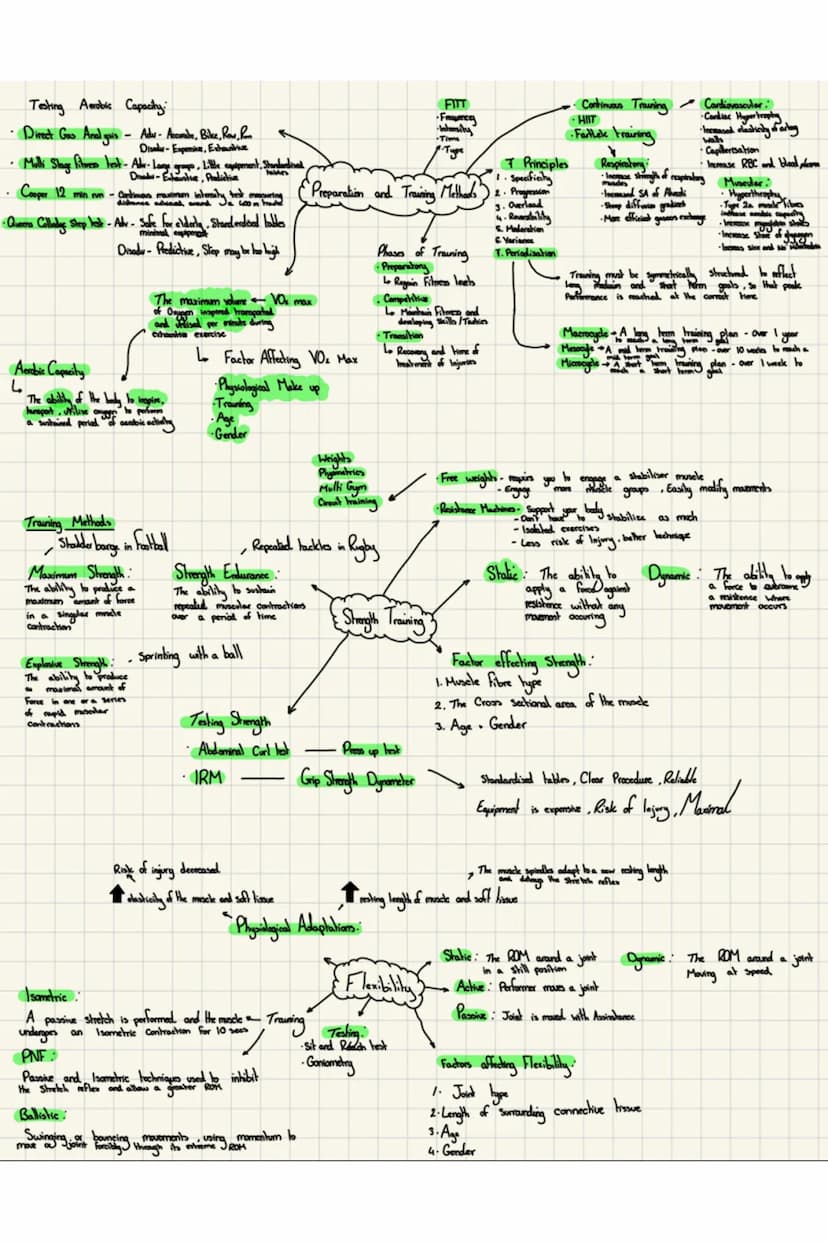 Testing Aerobic Capacity:
· Direct Gas Analysis - Adv - Accurate, Bike, Row, Run
Disadv - Expensive, Exhaustive
· Multi Stage Fitness test - Adv - Large groups, Little equipment, Standardised tables
Disadv - Exhaustive, Predictive
· Cooper 12 min run - Continuous maximum intensity test measuring
distance achieved, around a 400 m track
· Queens College Step test - Adv - Safe for elderly, Standardised tables
minimal equipment
Disadv - Predictive, Step may be too high
Preparation and Training Methods
FITT
· Frequency
· Intensity
· Time
· Type
· Continuous Training
· HIIT
· Fartlek training
Cardiovascular:
· Cardiac Hypertrophy
· Increased elasticity of artery
walls
· Capillarisation
· Increase RBC and blood plasma
Respiratory:
· Increase strength of respiratory
muscles
· Increased SA of Alveoli
· Steep diffusion gradient
· More efficient gaseous exchange
Muscular:
· Hypertrophy
· Type 2a muscle fibres
increase aerobic capacity
· Increase myoglobin stores
· Increase store of glycogen
· Increase size and no.
7 Principles
1. Specificity
2. Progression
3. Overload
4. Reversability
5. Moderation
6. Variance
7. Periodisation
Training must be symmetrically structured to reflect
long medium and short term goals, so that peak
Performance is reached at the correct time
Macrocycle → A long term training plan - over 1 year
to reach a long term goal
Mesocycle → A mid term training plan - over 10 weeks to reach a
mid term goal
Microcycle → A short term training plan - over 1 week to
reach a short term goal
Phases of Training
· Preparatory
↳ Regain Fitness levels
· Competitive
↳ Maintain Fitness and
developing Skills/Tactics
· Transition
↳ Recovery and time of
treatment of Injuries
The maximum volume ← VO₂ max
of Oxygen inspired transported
and utilised per minute during
exhaustive exercise
↳ Factor Affecting VO₂ Max
· Physiological Make up
· Training
· Age
· Gender
Aerobic Capacity
↳
The ability of the body to inspire,
transport, utilise oxygen to perform
a sustained period of aerobic activity
Weights
Plyometrics
Multi Gym
Circuit training
· Free weights - requires you to engage a stabiliser muscle
- Engage more muscle groups, Easily modify movements
· Resistance Machines - Support your body
- Don't have to stabilise as much
- Isolated exercises
- Less risk of Injury, better technique
Training Methods
Shoulder barge in Football
Maximum Strength:
The ability to produce a
maximum amount of force
in a singular muscle
contraction
Repeated tackles in Rugby
Strength Endurance:
The ability to sustain
repeated muscular contractions
over a period of time
Strength Training
Static: The ability to
apply a force against
resistance without any
movement occuring
Dynamic: The ability to apply
a force to overcome
a resistence where
movement occurs
Explosive Strength: - Sprinting with a ball
The ability to produce
a maximal amount of
Force in one or a series
of rapid muscular
contractions
Factor effecting Strength:
1. Muscle Fibre type
2. The Cross Sectional area of the muscle
3. Age + Gender
Testing Strength
· Abdominal Curl test — Press up test
· 1RM — Grip Strength Dynamometer
Standardised tables, Clear Procedure, Reliable
Equipment is expensive, Risk of Injury, Maximal
Risk of injury decreased
⬆ elasticity of the muscle and soft tissue
⬆ resting length of muscle and soft tissue
The muscle spindles adapt to a new resting length
and delays the stretch reflex
Physiological Adaptations:
Flexibility
Static: The ROM around a joint
in a still position
Dynamic: The ROM around a joint
Moving at speed
Active: Performer moves a joint
Passive: Joint is moved with Assistance
Isometric:
A passive stretch is performed and the muscle ← Training
undergoes an Isometric Contraction for 10 secs
PNF:
Passive and Isometric techniques used to inhibit
the stretch reflex and allow a greater ROM
Ballistic:
Swinging or bouncing movements, using momentum to
move a joint forcibly through its extreme ROM
Testing:
· Sit and Reach test
· Goniometry
Factors affecting Flexibility:
1. Joint type
2. Length of surrounding connective tissue
3. Age
4. Gender